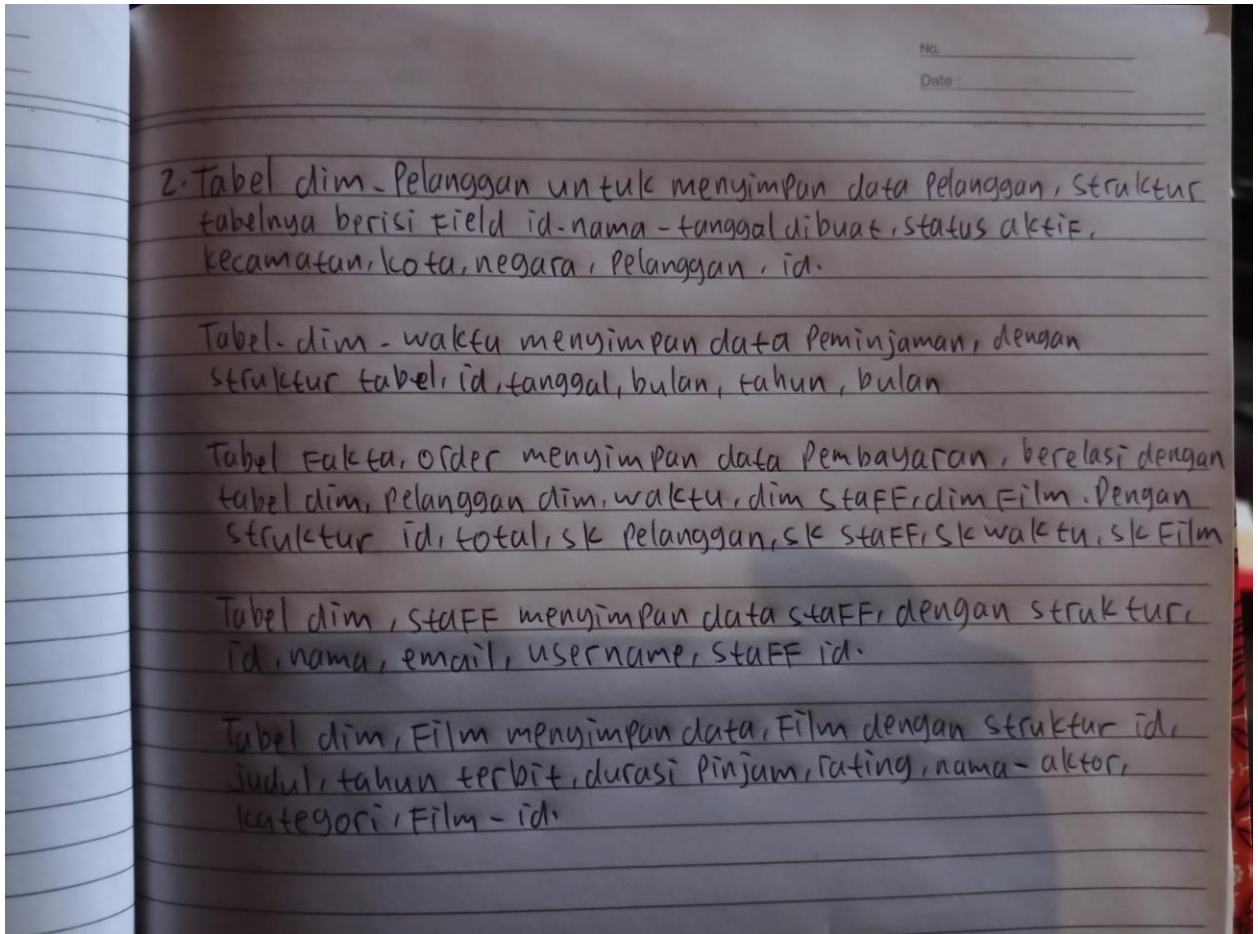 No.
Date :
2. Tabel dim - Pelanggan untuk menyimpan data pelanggan, struktur
tabelnya berisi Field id-nama - tanggal dibuat, status aktif,
kecamatan, kota, negara, pelanggan, id.
Tabel - dim - waktu menyimpan data Peminjaman, dengan
struktur tabel, id, tanggal, bulan, tahun, bulan
Tabel Fakta, order menyimpan data Pembayaran, berelasi dengan
tabel dim, pelanggan dim, waktu, dim staFF, dim Film. Dengan
struktur id, total, sk pelanggan, sk staFF, sk waktu, sk Film
Tabel dim, staFF menyimpan data staFF, dengan struktur,
id, nama, email, username, staFF id.
Tabel dim, Film menyimpan data, Film dengan struktur id,
judul, tahun terbit, durasi Pinjam, rating, nama - aktor,
kategori, Film - id.